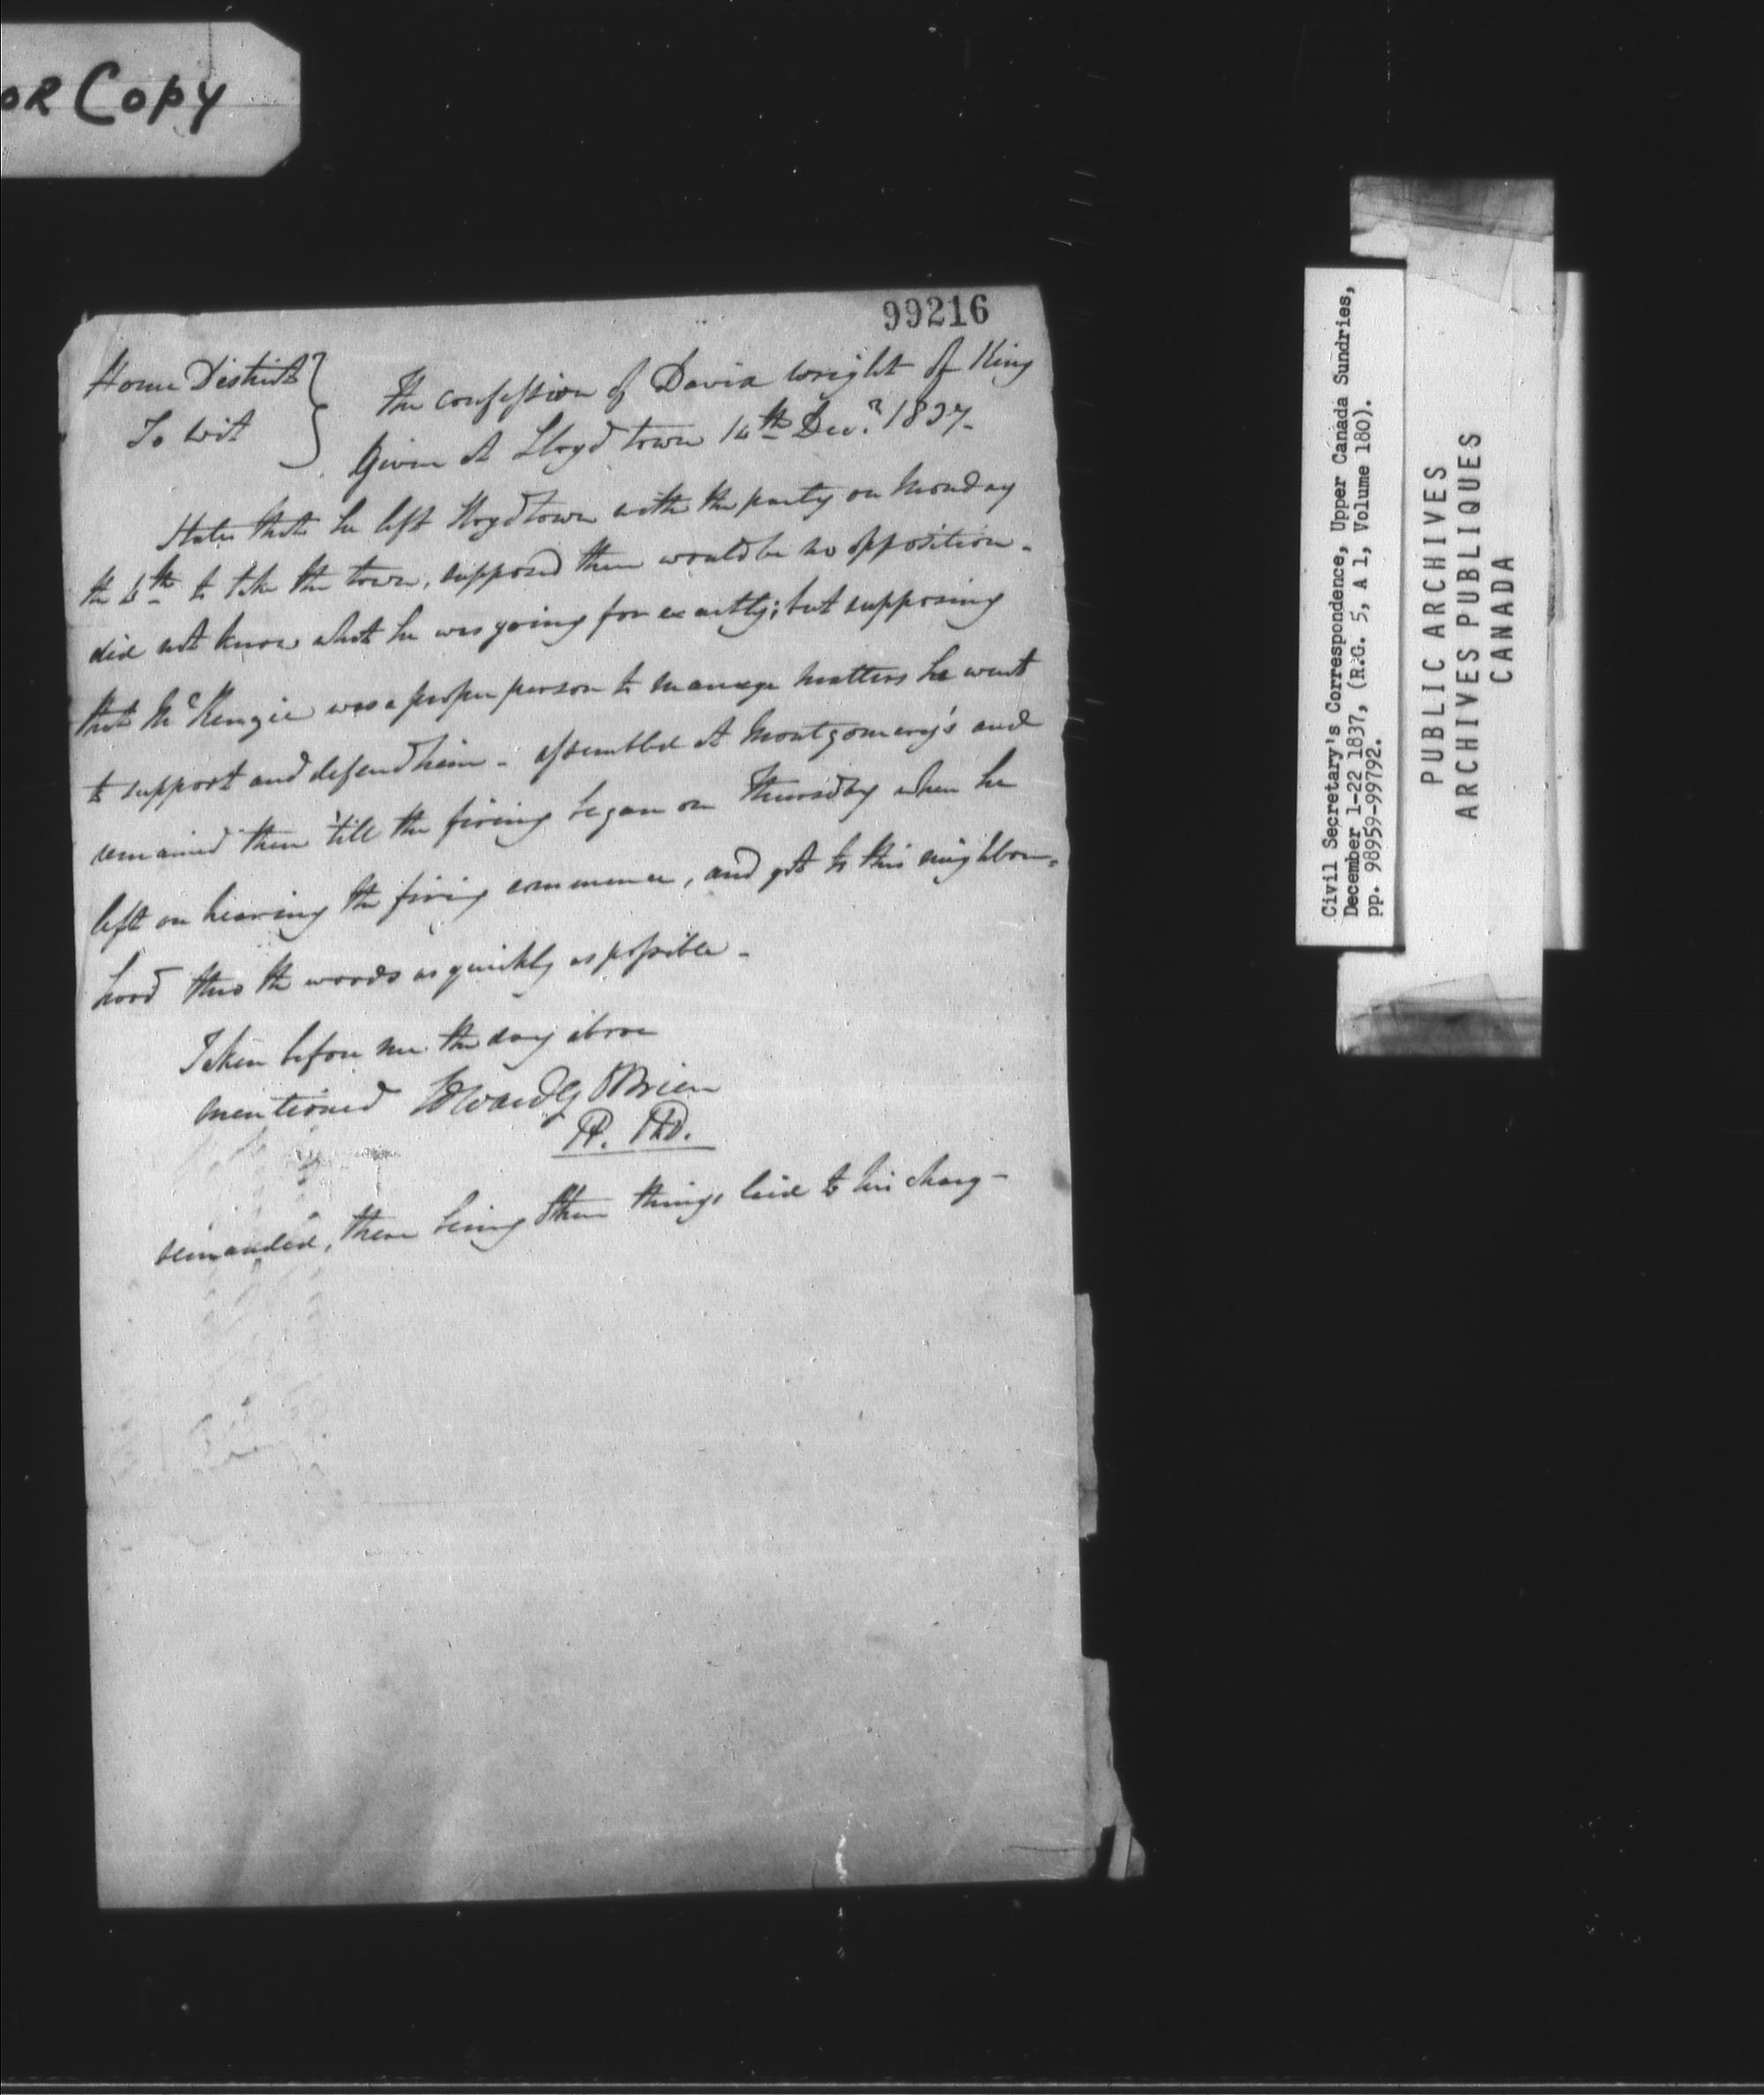 OR Copy
99216
Home District
To Wit
The confession of David Wright of King
Given at Lloyd town 14th Decr 1837-
States that he left Lloydtown with the party on Monday
the 4th to take the town, supposed there would be no opposition -
did not know what he was going for exactly; but supposing
that McKenzie was a proper person to manage matters he went
to support and defend him - assembled at Montgomery's and
remained there 'till the firing began on Thursday when he
left on hearing the firing commence, and got to this neighbour=
hood thro the woods as quickly as possible -
Taken before me the day above
mentioned Edward G OBrien
remanded, there being other things laid to his charg-
Civil Secretary's Correspondence, Upper Canada Sundries,
December 1-22 1837, (R.G. 5, A 1, Volume 180).
pp. 98959-99792.
PUBLIC ARCHIVES
ARCHIVES PUBLIQUES
CANADA